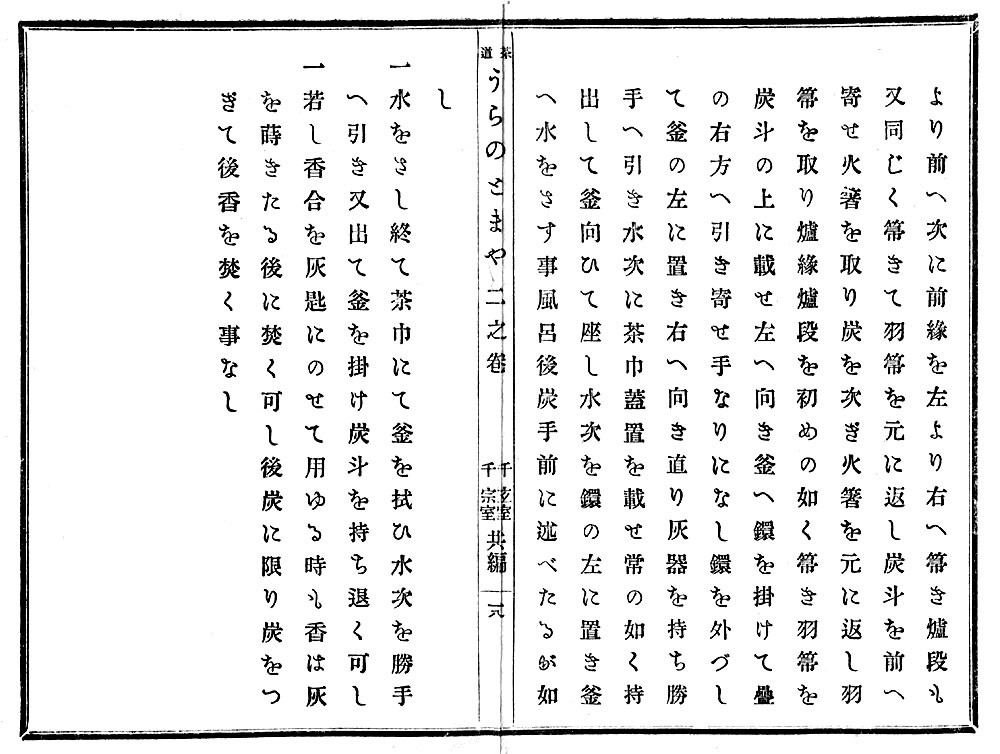 より前へ次に前緣を左より右へ箒き爐段も
又同じく箒きて羽箒を元に返し炭斗を前へ
寄せ火箸を取り炭を次ぎ火箸を元に返し羽
箒を取り爐緣爐段を初めの如く箒き羽箒を
炭斗の上に載せ左へ向き釜へ鐶を掛けて疊
の右方へ引き寄せ手なりになし鐶を外づし
て釜の左に置き右へ向き直り灰器を持ち勝
手へ引き水次に茶巾蓋置を載せ常の如く持
出して釜向ひて座し水次を鐶の左に置き釜
へ水をさす事風呂後炭手前に述べたるが如
茶道
うらのとまや二之卷
千玄室
千宗室
共編
十八
し
一水をさし終て茶巾にて釜を拭ひ水次を勝手
へ引き又出て釜を掛け炭斗を持ち退く可し
一若し香合を灰匙にのせて用ゆる時も香は灰
を蒔きたる後に焚く可し後炭に限り炭をつ
ぎて後香を焚く事なし